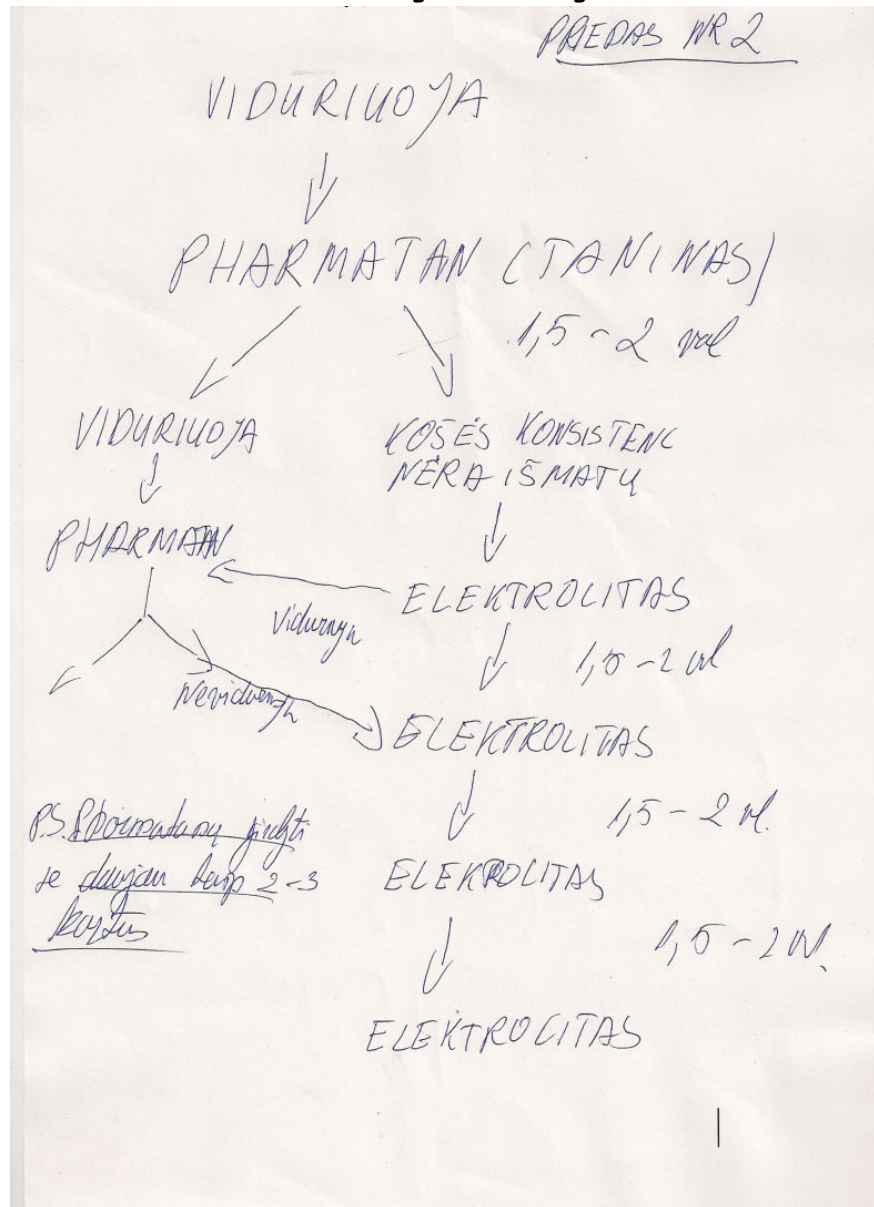 PRIEDAS NR 2
VIDURIUOJA
PHARMATAN (TANINAS)
1,5 - 2 val
VIDURIUOJA
KOŠĖS KONSISTENC
NĖRA IŠMATŲ
PHARMATAN
ELEKTROLITAS
1,5 - 2 val
ELEKTROLITAS
1,5 - 2 vl.
P.S. girdyti
ne daugiau kaip 2-3
kartus
ELEKROLITAS
1,5 - 2 vl.
ELEKTROLITAS